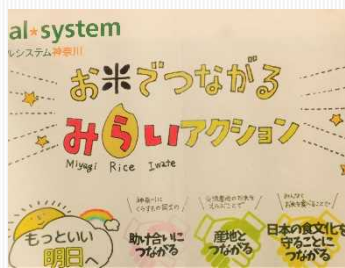 al★system
ルシステム神奈川
お米でつながる
みらいアクション
Miyagi Rice Iwate
もっといい
明日へ
神奈川に
助け合いに
つながる
産地と
つながる
日本の食文化を
守ることに
つながる